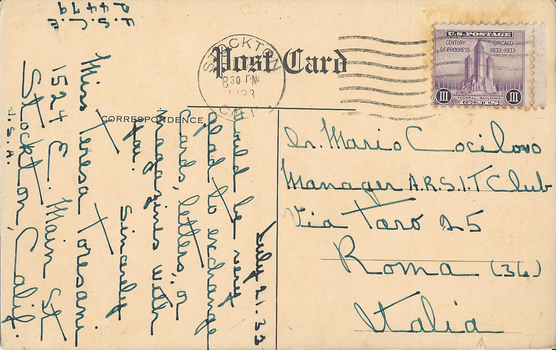 E.S.C.E
24479
Post Card
CORRESPONDENCE
STOCKTON
830 PM
1933
CALIF
U.S. POSTAGE
CENTURY OF PROGRESS
CHICAGO 1833-1933
III
CENTS
III
July 21.33
Would be very
glad to exchange
cards, letters, or
magazines with
you. Sincerely
Miss Teresa Toresani
1524 E. Main St
Stockton, Calif.
U.S.A.
Dr. Mario Cocilovo
Manager A.R.S.I.T Club
Via Taro 25
Roma (36)
Italia